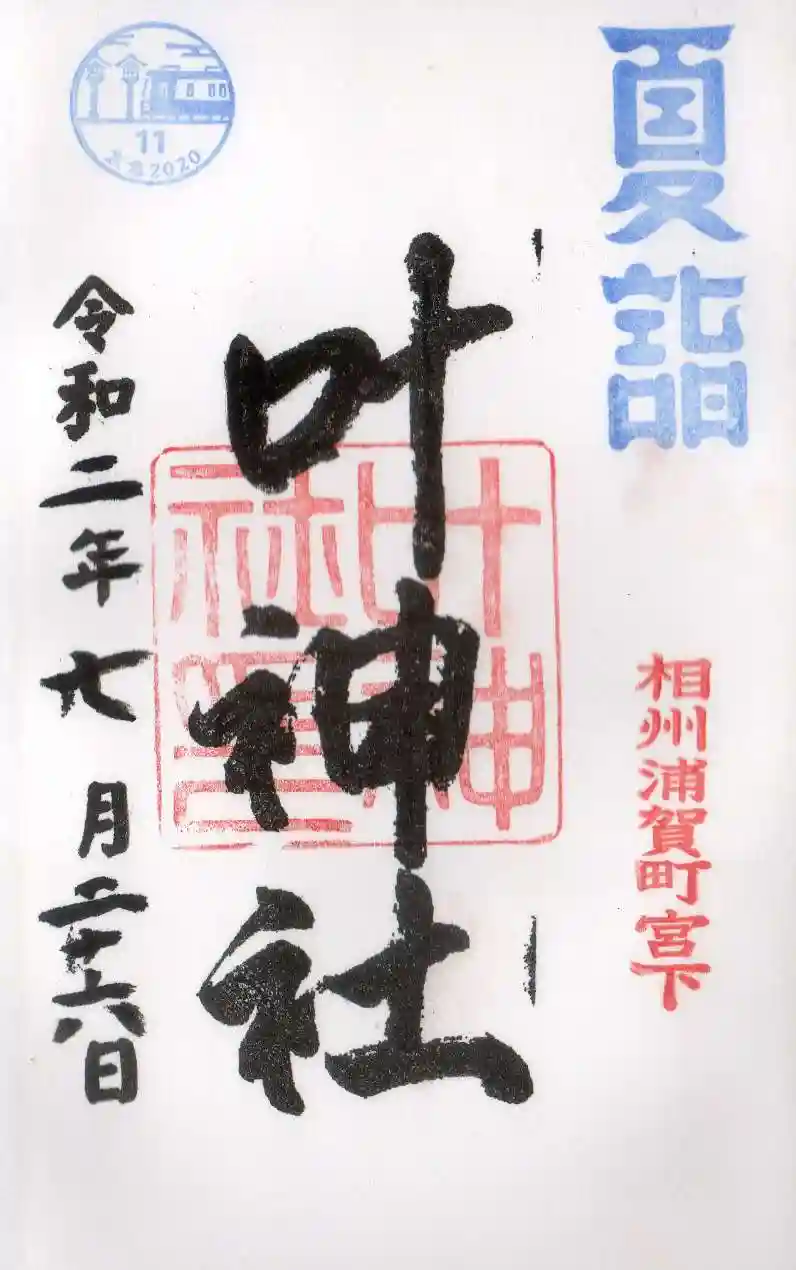 夏詣
相州浦賀町宮下
叶神社
叶神社璽
令和二年七月二十六日
11
2020